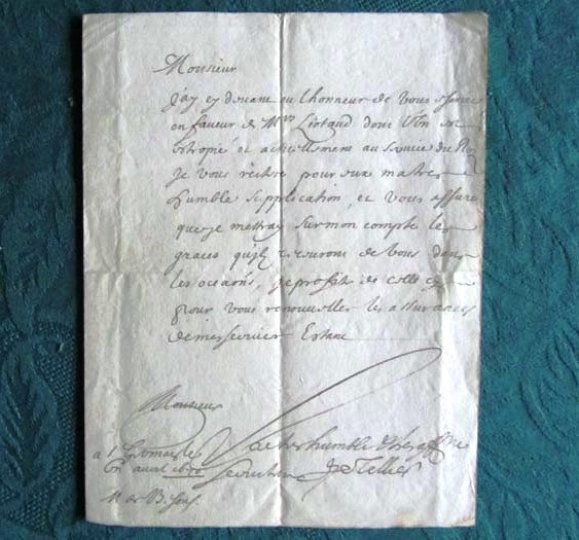 Monsieur
J'ay cy devant eu l'honneur de vous
en faveur de Mrs Liotaud dont l'un est
estropié et actuellement au service du Roy
Je vous reitere pour eux ma tres
humble supplication, et vous assure
que je mettray sur mon compte les
graces qu'ils recevront de vous dans
les ocasions, je profite de celle cy
pour vous renouveller les assurances
de mes services Estant
Monsieur
Vostre tres humble et tres affne
à le
avril serviteur
M de